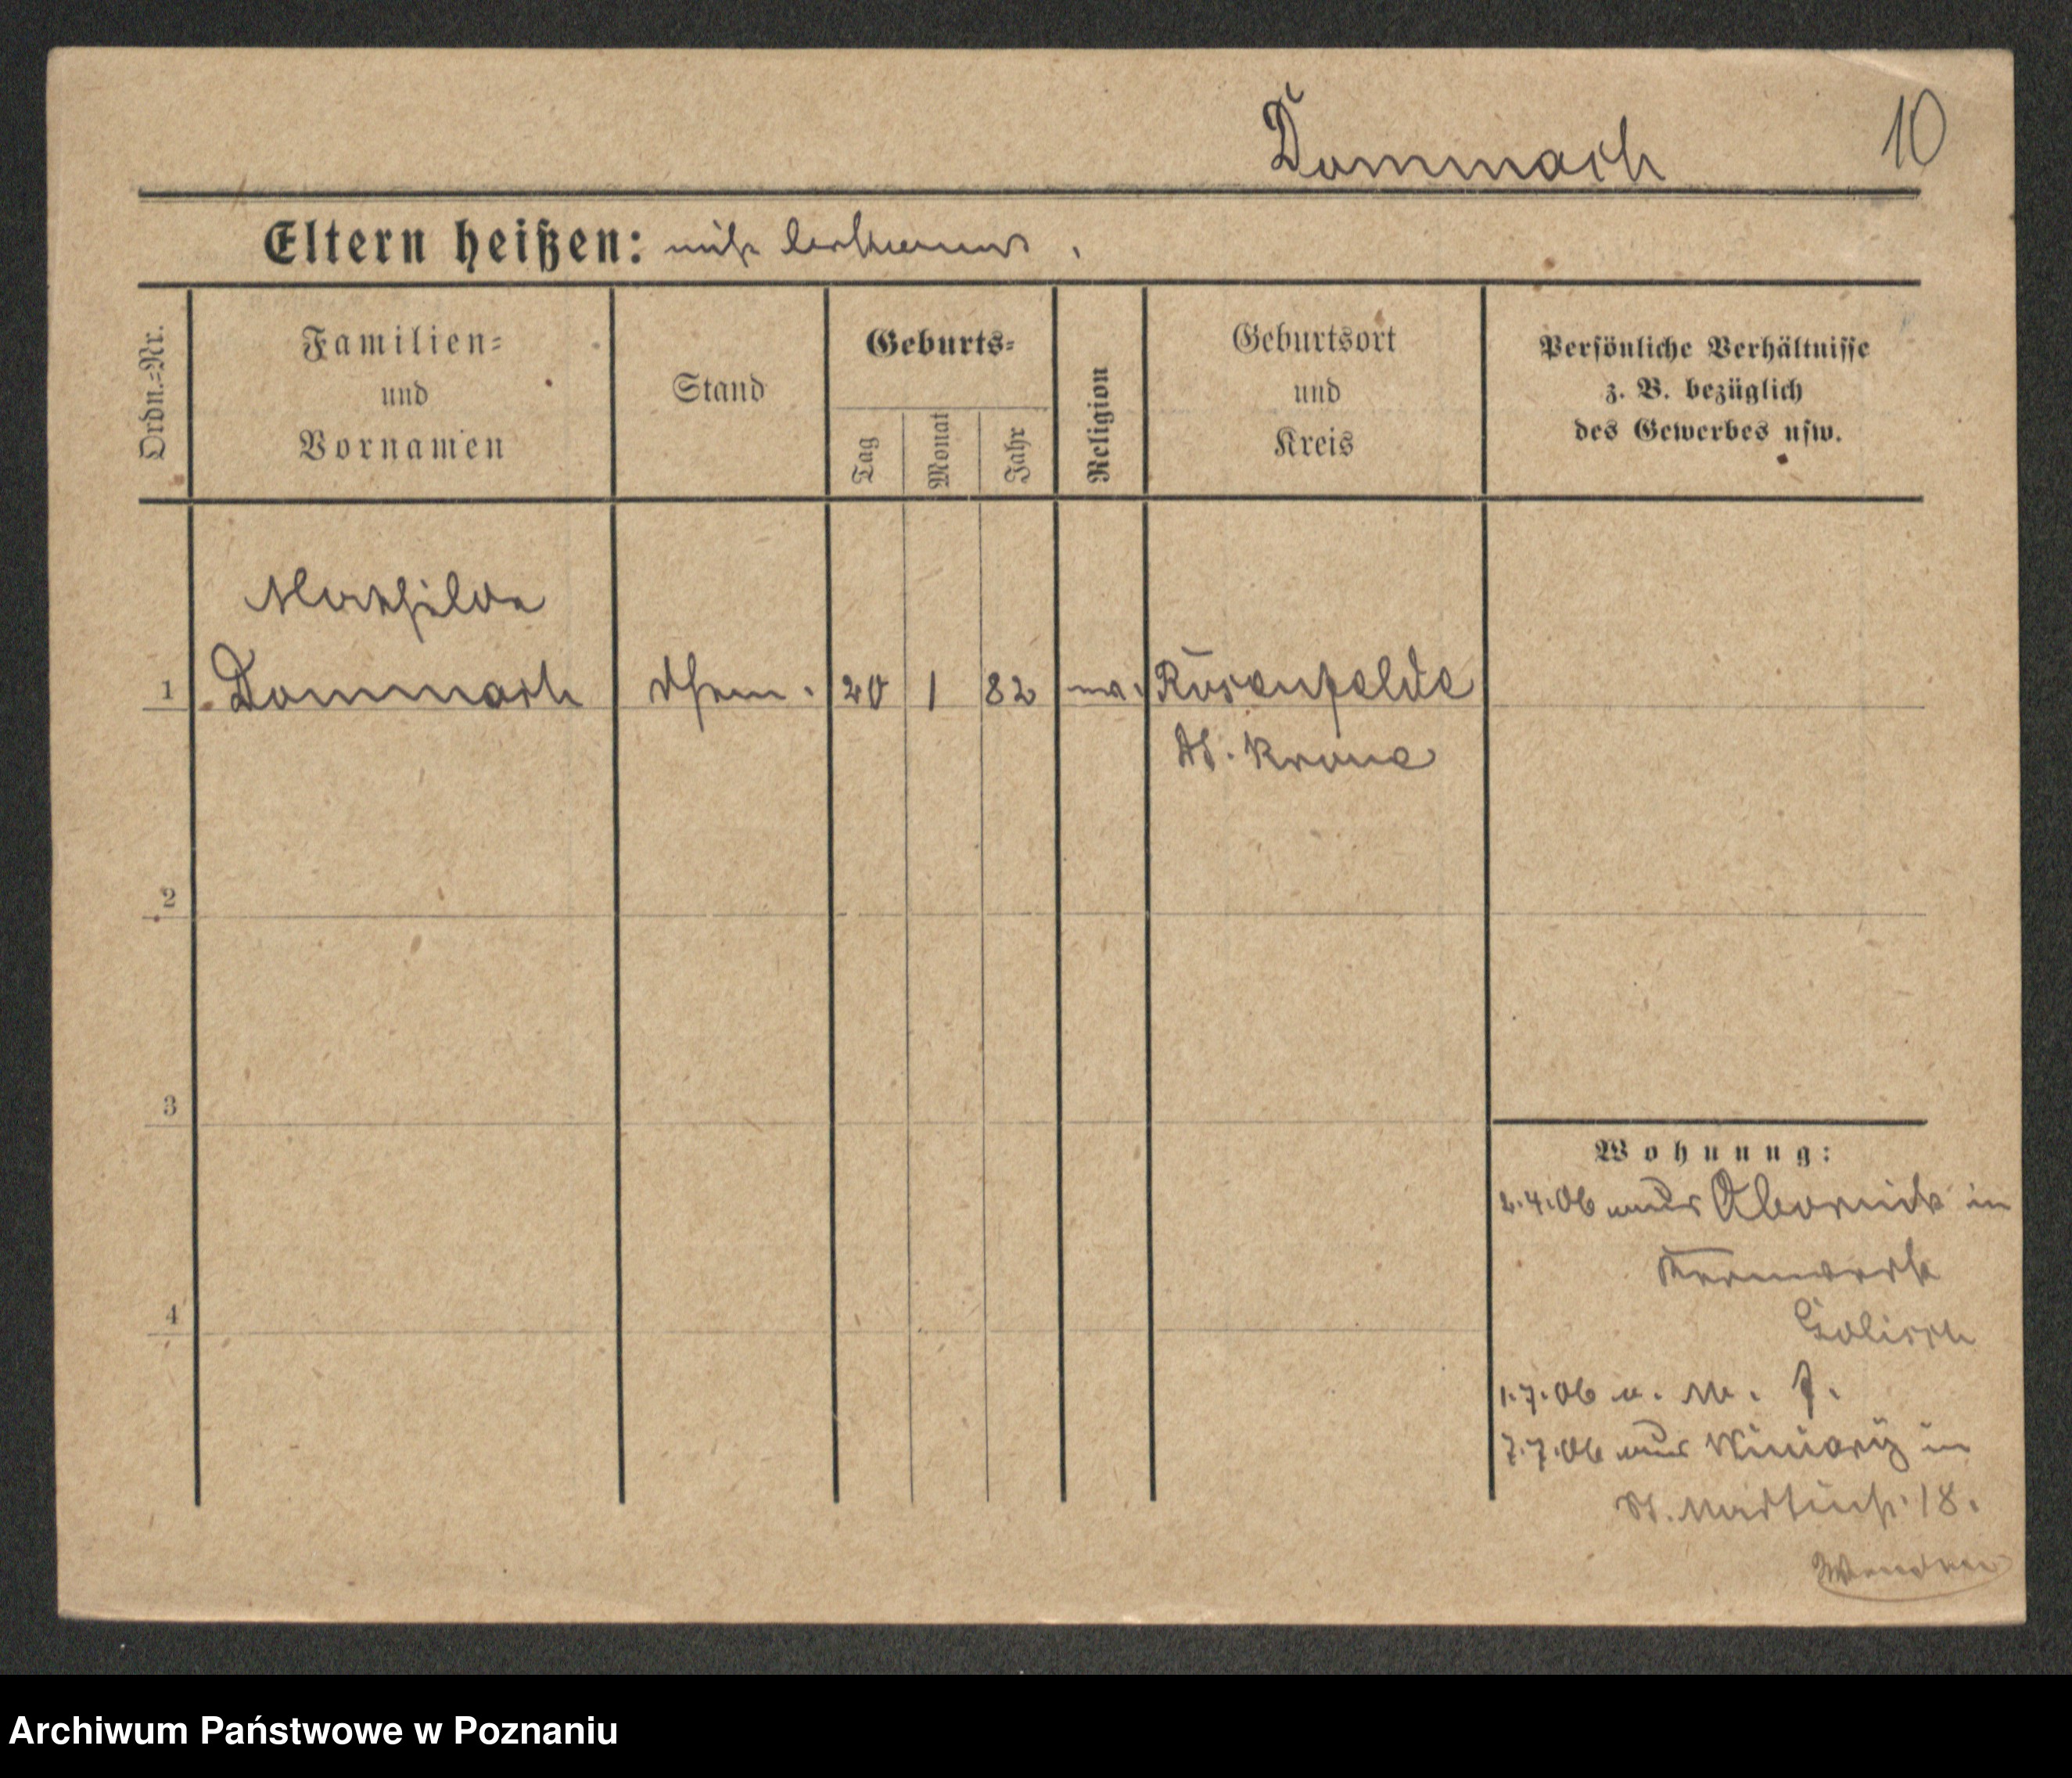 Dommach
10
Eltern heißen: nicht bekannt.
Ordn.=Nr.
Familien=
und
Vornamen
Stand
Geburts=
Tag
Monat
Jahr
Religion
Geburtsort
und
Kreis
Persönliche Verhältnisse
z. B. bezüglich
des Gewerbes usw.
Mathilde
1 Dommach 20 1 82 Rosenfelde
Dt. Krone
2
3
4
Wohnung:
2.4.06 aus Obornick in
Kernwerk
1.7.06
7.7.06 aus Winiary in
St. Martinstr. 18.
Archiwum Państwowe w Poznaniu